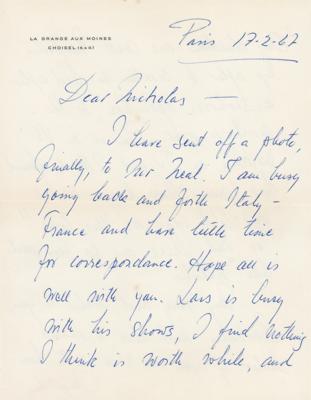 LA GRANGE AUX MOINES
CHOISEL (S & O)
Paris 17-2-67
Dear Nicholas —
I have sent off a photo,
finally, to Mr Neal. I am busy
going back and forth Italy -
France and have little time
for correspondance. Hope all is
well with you. Lars is busy
with his shows, I find nothing
I think is worth while, and